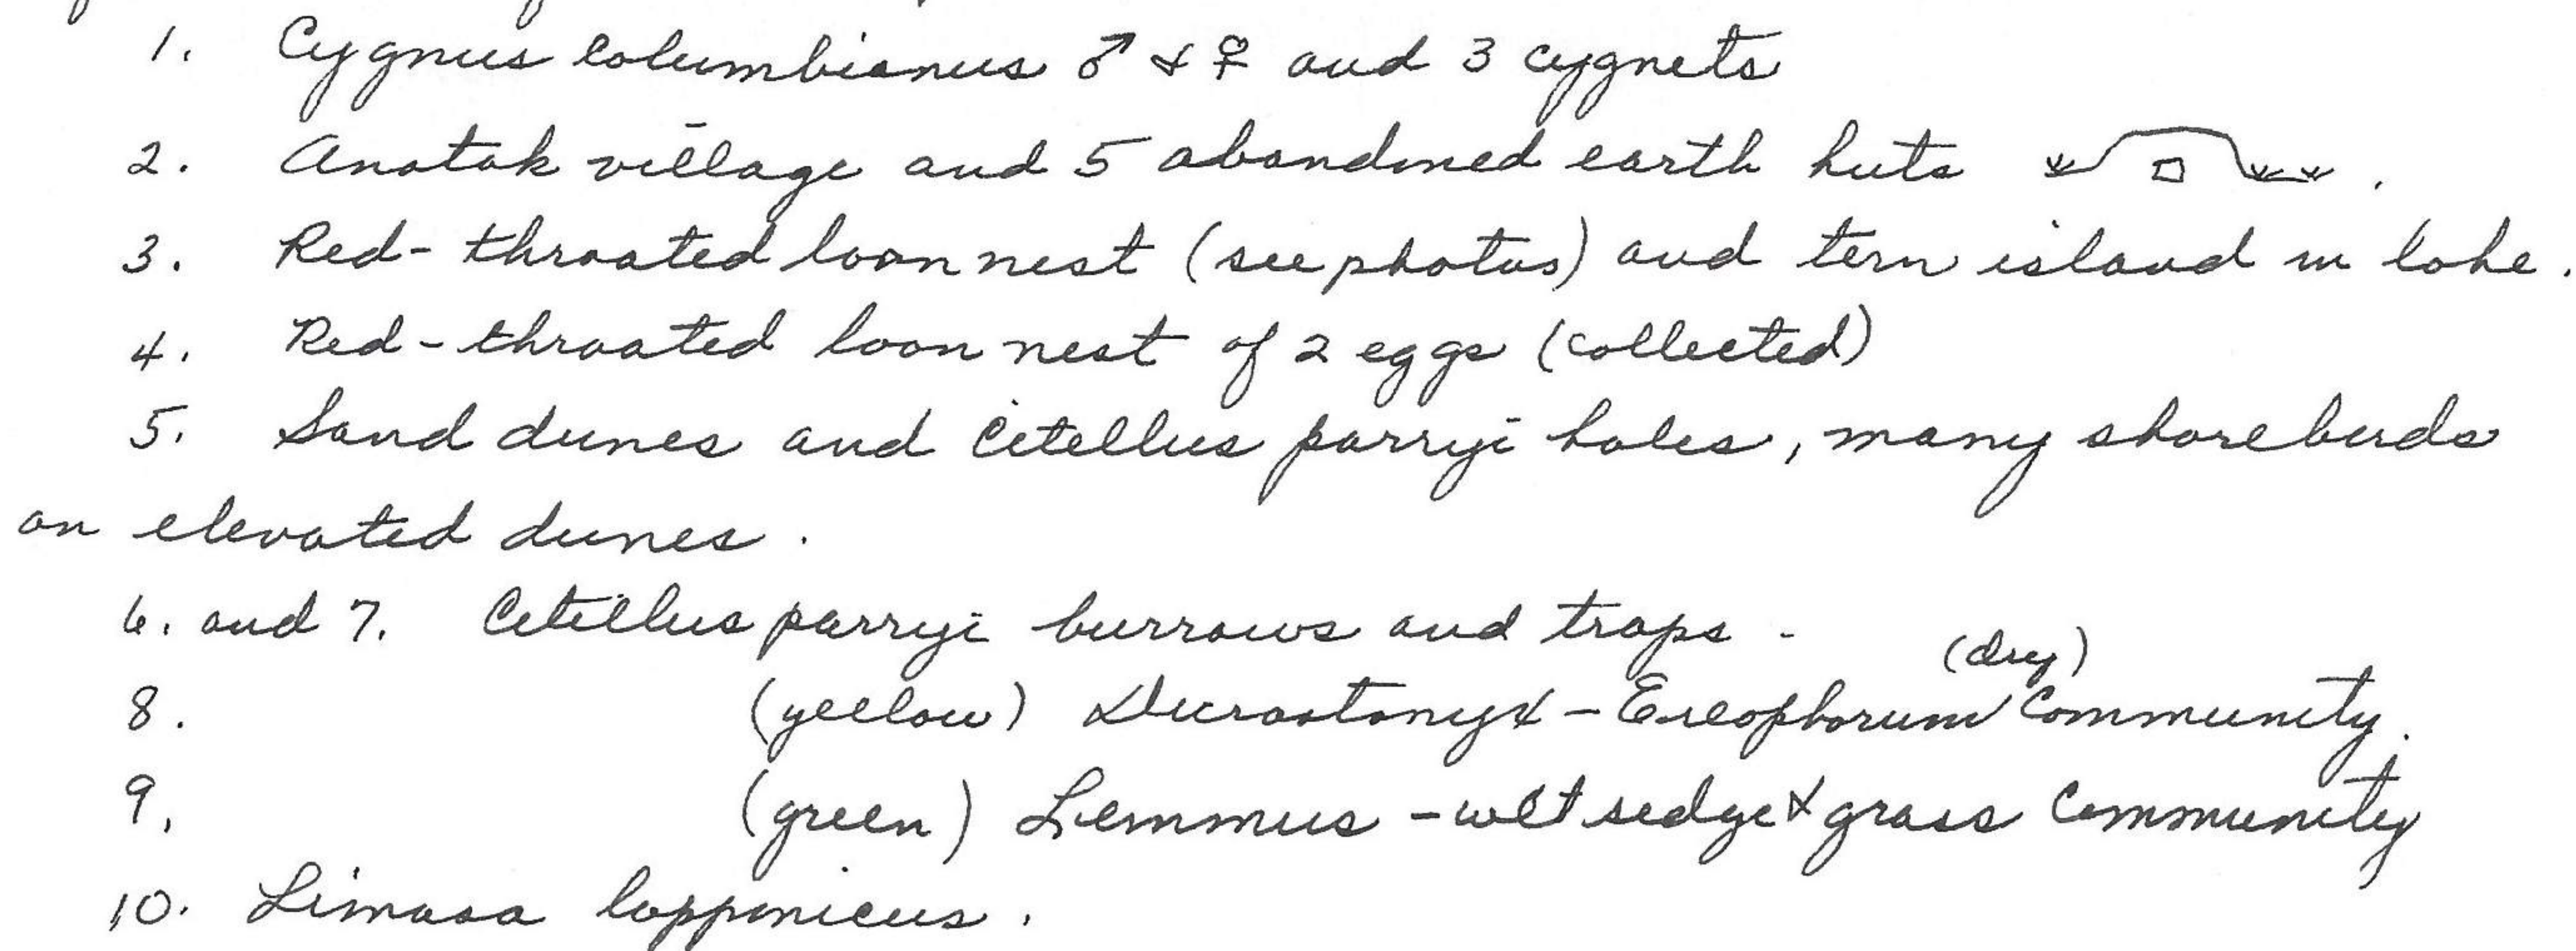 1. Cygnus columbianus ♂ & ♀ and 3 cygnets
2. Anatak village and 5 abandoned earth huts .
3. Red-throated loon nest (see photos) and tern island in lake.
4. Red-throated loon nest of 2 eggs (collected)
5. Sand dunes and Citellus parryi holes, many shorebirds
on elevated dunes.
6. and 7. Citellus parryi burrows and traps.
(dry)
8. (yellow) Dicrostonyx - Eriophorum Community.
9. (green) Lemmus - wet sedge & grass Community
10. Limosa lapponicus.